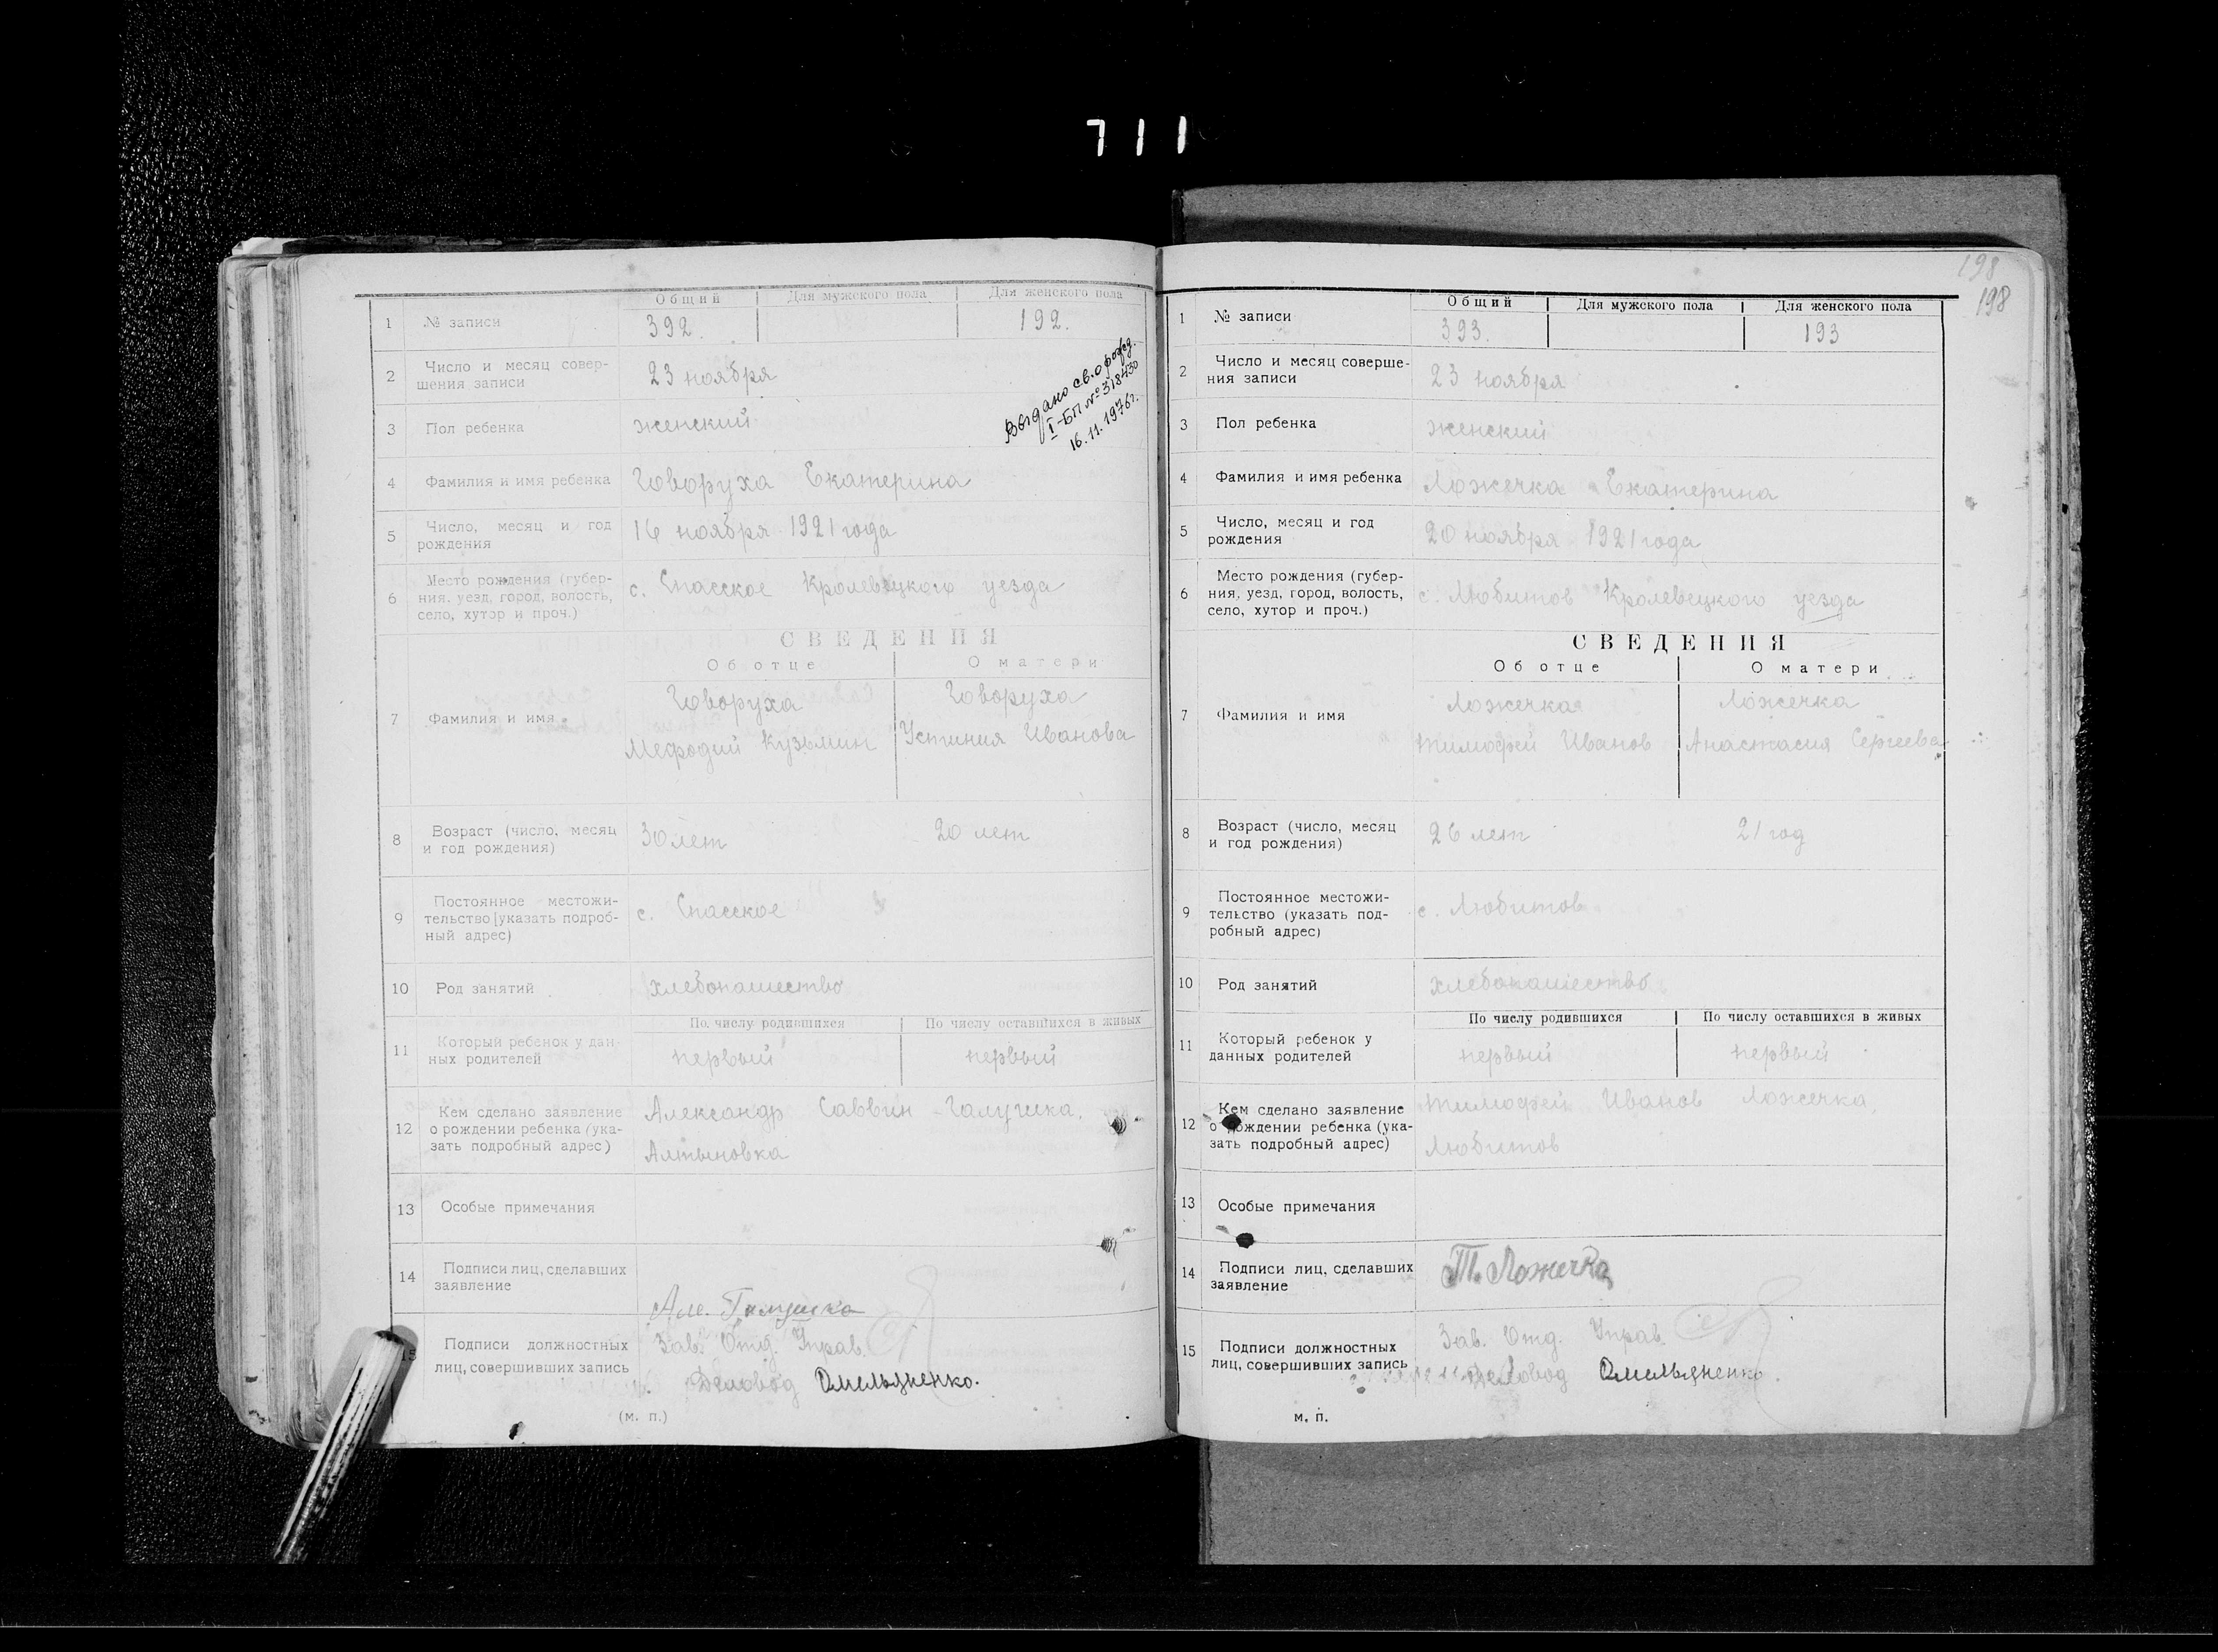 711
Общий Для мужского пола Для женского пола
1 № записи 392. 192.
Выдано св. о рожд.
I-БП № 318430
16.11.1976г.
2 Число и месяц совер-
шения записи 23 ноября
3 Пол ребенка женский
4 Фамилия и имя ребенка Говоруха Екатерина
5 Число, месяц и год
рождения 16 ноября 1921 года
6 Место рождения (губер-
ния, уезд, город, волость, с. Спасское Кролевецкого уезда
село, хутор и проч.)
СВЕДЕНИЯ
Об отце О матери
7 Фамилия и имя Говоруха Говоруха
Мефодий Кузьмин Устиния Иванова
8 Возраст (число, месяц
и год рождения) 30 лет 20 лет
9 Постоянное местожи-
тельство [указать подроб- с. Спасское
ный адрес)
10 Род занятий хлебопашество
По числу родившихся По числу оставшихся в живых
11 Который ребенок у дан-
ных родителей первый первый
12 Кем сделано заявление Александр Саввин Галушка.
о рождении ребенка (ука-
зать подробный адрес) Алтыновка
13 Особые примечания
14 Подписи лиц, сделавших
заявление
Але. Галушка
15 Подписи должностных Зав. Отд. Управ.
лиц, совершивших запись Деловод Омельяненко.
(м. п.)
198
198
Общий Для мужского пола Для женского пола
1 № записи 393. 193
2 Число и месяц соверше-
ния записи 23 ноября
3 Пол ребенка женский
4 Фамилия и имя ребенка Ложечка Екатерина
5 Число, месяц и год
рождения 20 ноября 1921 года
6 Место рождения (губер-
ния, уезд, город, волость, с. Любитов Кролевецкого уезда
село, хутор и проч.)
СВЕДЕНИЯ
Об отце О матери
7 Фамилия и имя Ложечка Ложечка
Тимофей Иванов Анастасия Сергеева
8 Возраст (число, месяц
и год рождения) 26 лет 21 год
9 Постоянное местожи-
тельство (указать под- с. Любитов
робный адрес)
10 Род занятий хлебопашество
По числу родившихся По числу оставшихся в живых
11 Который ребенок у
данных родителей первый первый
12 Кем сделано заявление Тимофей Иванов Ложечка,
о рождении ребенка (ука-
зать подробный адрес) Любитов
13 Особые примечания
14 Подписи лиц, сделавших Т. Ложечка
заявление
15 Подписи должностных Зав. Отд. Управ.
лиц, совершивших запись Деловод Омельяненко.
м. п.